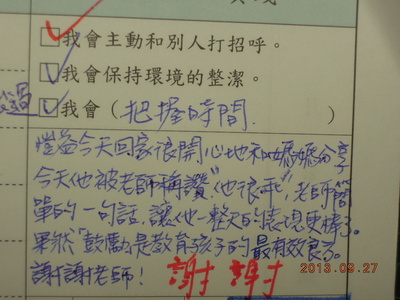 我會主動和別人打招呼。
我會保持環境的整潔。
我會（把握時間.）
愷益今天回家很開心地和媽媽分享
今天他被老師稱讚"他很乖",老師簡
單的一句話,讓他一整天的表現更棒了。
果然"鼓勵"是教育孩子的最有效良方。
謝謝老師!
謝謝
2013.09.27